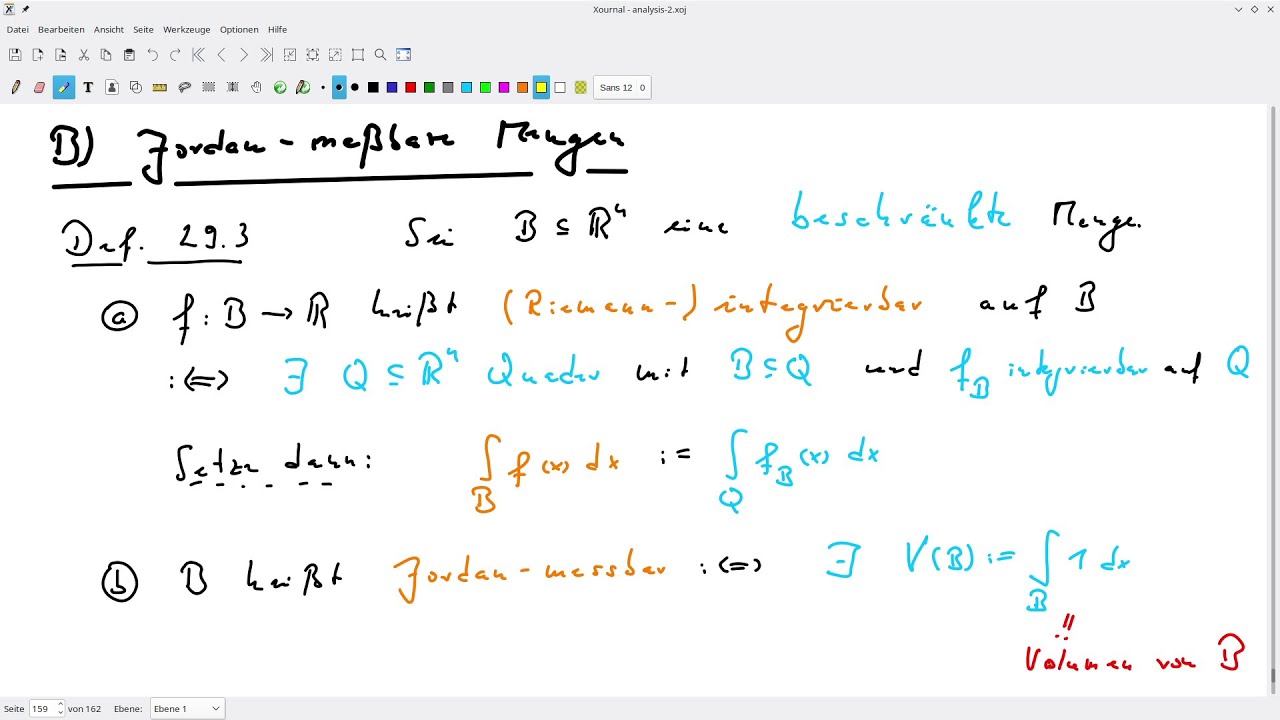 Xournal - analysis-2.xoj
Datei Bearbeiten Ansicht Seite Werkzeuge Optionen Hilfe
Sans 12 0
B) Jordan-meßbare Mengen
Def. 29.3 Sei B ⊆ ℝⁿ eine beschränkte Menge.
(a) f: B → ℝ heißt (Riemann-) integrierbar auf B
:⇔ ∃ Q ⊆ ℝⁿ Quader mit B ⊆ Q und f_B integrierbar auf Q
Setze dann: ∫_B f(x) dx := ∫_Q f_B(x) dx
(b) B heißt Jordan-messbar :⇔ ∃ V(B) := ∫_B 1 dx
"
Volumen von B
Seite 159 von 162 Ebene: Ebene 1